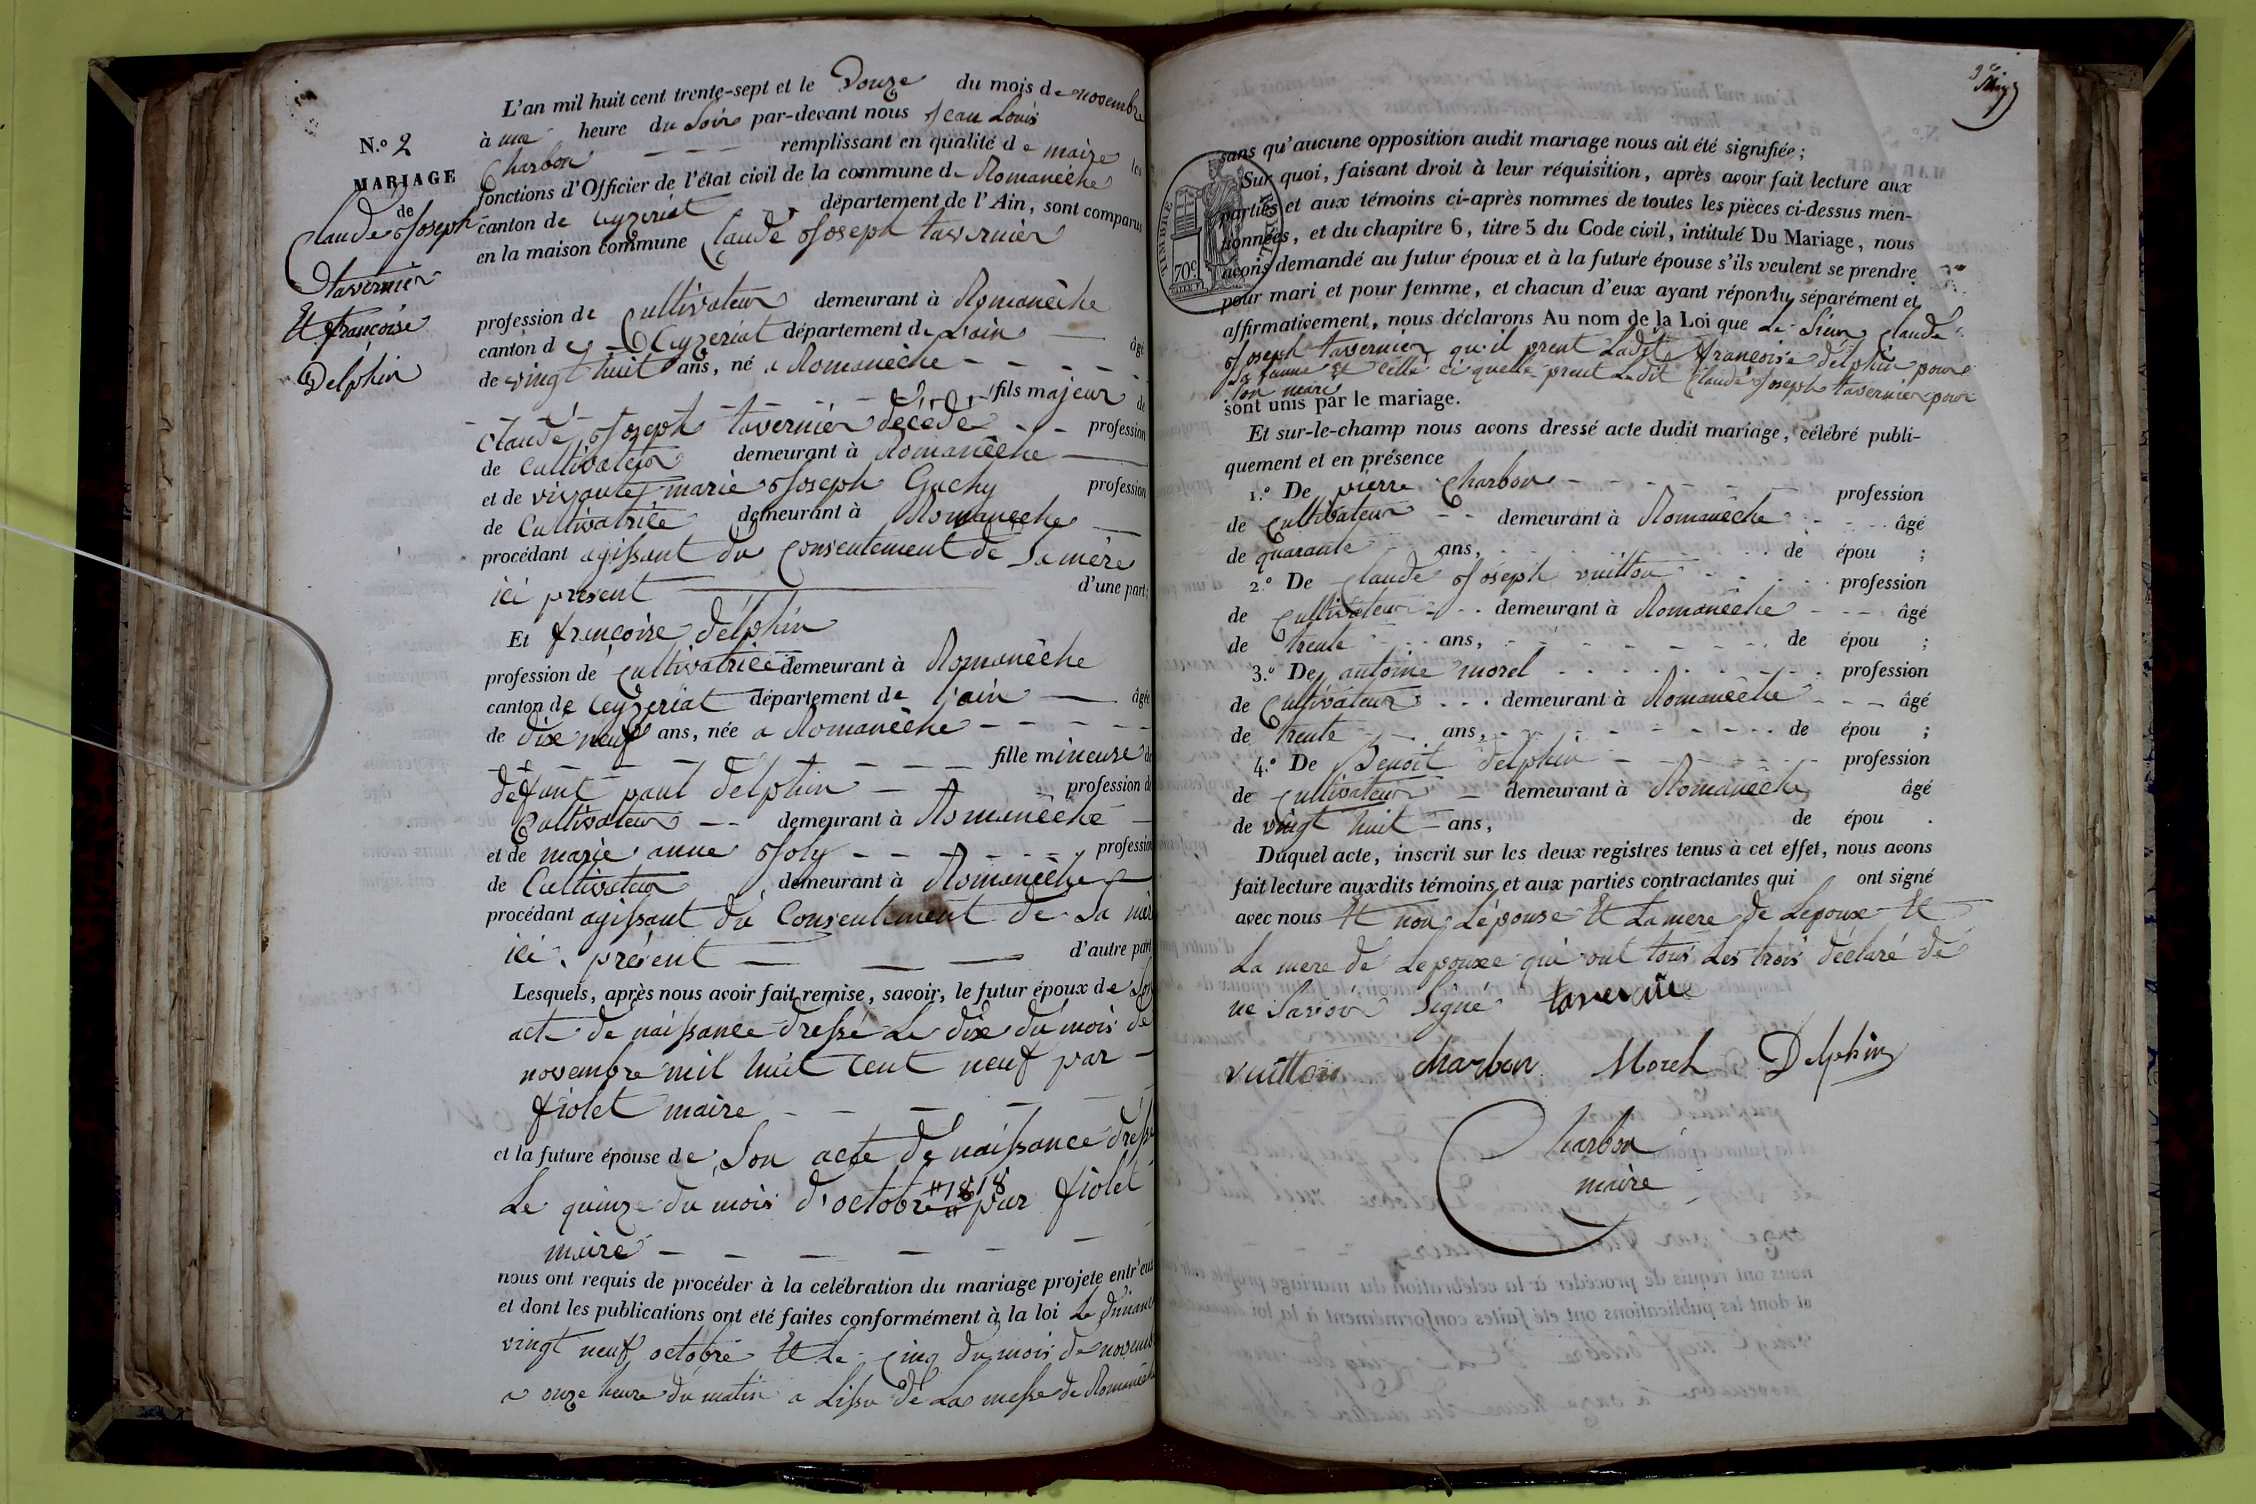 L'an mil huit cent trente-sept et le Douze du mois de novembre
à une heure du Soir par-devant nous Jean Louis
Charbon remplissant en qualité de maire les
fonctions d'Officier de l'état civil de la commune de Romanêche
canton de Ceyzeriat département de l'Ain, sont comparus
en la maison commune Claude Joseph tavernier
N.º 2
MARIAGE
de
Claude Joseph
tavernier
Et françoise
Delphin
profession de Cultivateur demeurant à Romanêche
canton de Ceyzeriat département de L'ain âgé
de vingt huit ans, né a Romanêche
fils majeur de
Claude Joseph tavernier décédé profession
de Cultivateur demeurant à Romanêche
et de vivante marie Joseph Guchy profession
de Cultivatrice demeurant à Romanêche
procédant agissant du Consentement de Sa mère
ici present d'une part;
Et françoise Delphin
profession de Cultivatrice demeurant à Romanêche
canton de Ceyzeriat département de l'ain âgée
de dixe neuf ans, née a Romanêche
fille mineure de
défunt paul Delphin profession de
Cultivateur demeurant à Romanêche
et de marie anne Joly profession
de Cultivateur demeurant à Romanêche
procédant agissant du Consentement de Sa mère
ici présent d'autre part
Lesquels, après nous avoir fait remise, savoir, le futur époux de Son
acte de naissance dressé Le dixe du mois de
novembre mil huit cent neuf par
fiolet maire
et la future épouse de Son acte de naissance dressé
Le quinze du mois d'octobre # 1818 par fiolet
maire
nous ont requis de procéder à la celébration du mariage projete entr'eux
et dont les publications ont été faites conformément à la loi Le dimanche
vingt neuf octobre Et Le cinq du mois de novembre
a onze heure du matin a Lissu de La messe de Romanêche
sans qu'aucune opposition audit mariage nous ait été signifiée;
Sur quoi, faisant droit à leur réquisition, après avoir fait lecture aux
parties et aux témoins ci-après nommes de toutes les pièces ci-dessus men-
tionnées, et du chapitre 6, titre 5 du Code civil, intitulé Du Mariage, nous
avons demandé au futur époux et à la future épouse s'ils veulent se prendre
pour mari et pour femme, et chacun d'eux ayant répondu séparément et
affirmativement, nous déclarons Au nom de la Loi que Le Sieur Claude
Joseph tavernier qu'il prent Ladite françoise delphin pour
Sa famme Et celle ci quelle prent Ledit Claude Joseph tavernier pour
Son mari
sont unis par le mariage.
Et sur-le-champ nous avons dressé acte dudit mariage, célébré publi-
quement et en présence
1.º De pierre Charbon profession
de Cultivateur demeurant à Romanêche âgé
de quarante ans, de épou ;
2.º De Claude Joseph vuitton profession
de Cultivateur demeurant à Romanêche âgé
de trente ans, de épou ;
3.º De antoine morel profession
de Cultivateur demeurant à Romanêche âgé
de trente ans, de épou ;
4.º De Benoit delphin profession
de Cultivateur demeurant à Romanêche âgé
de vingt huit ans, de épou .
Duquel acte, inscrit sur les deux registres tenus à cet effet, nous avons
fait lecture auxdits témoins et aux parties contractantes qui ont signé
avec nous Et non Lépouse Et La mere de Lepoux Et
La mere de Lepouxe qui ont tous Les trois déclaré de
ne Savoir Signé tavernie
vuitton charbon Morel Delphin
Charbon
maire
TIMBRE ROYAL
70c